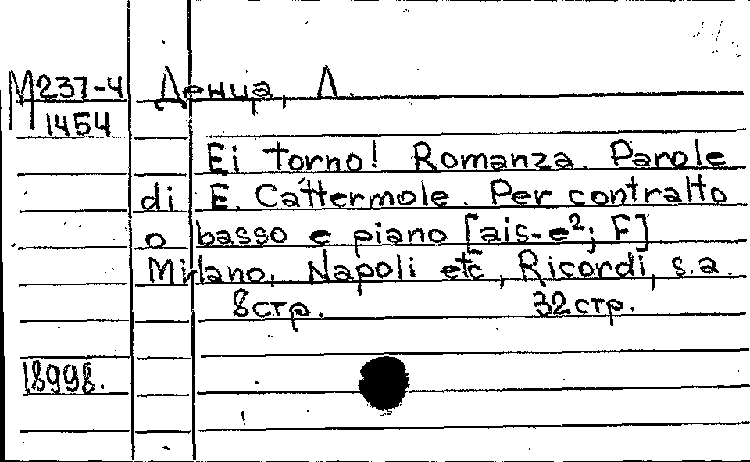 М237-4 Денца, Л.
1454
Ei torno! Romanza. Parole
di E. Cattermole. Per contralto
o basso e piano [ais-e²; F]
Milano, Napoli etc, Ricordi, s.a.
8стр. 32стр.
18998.